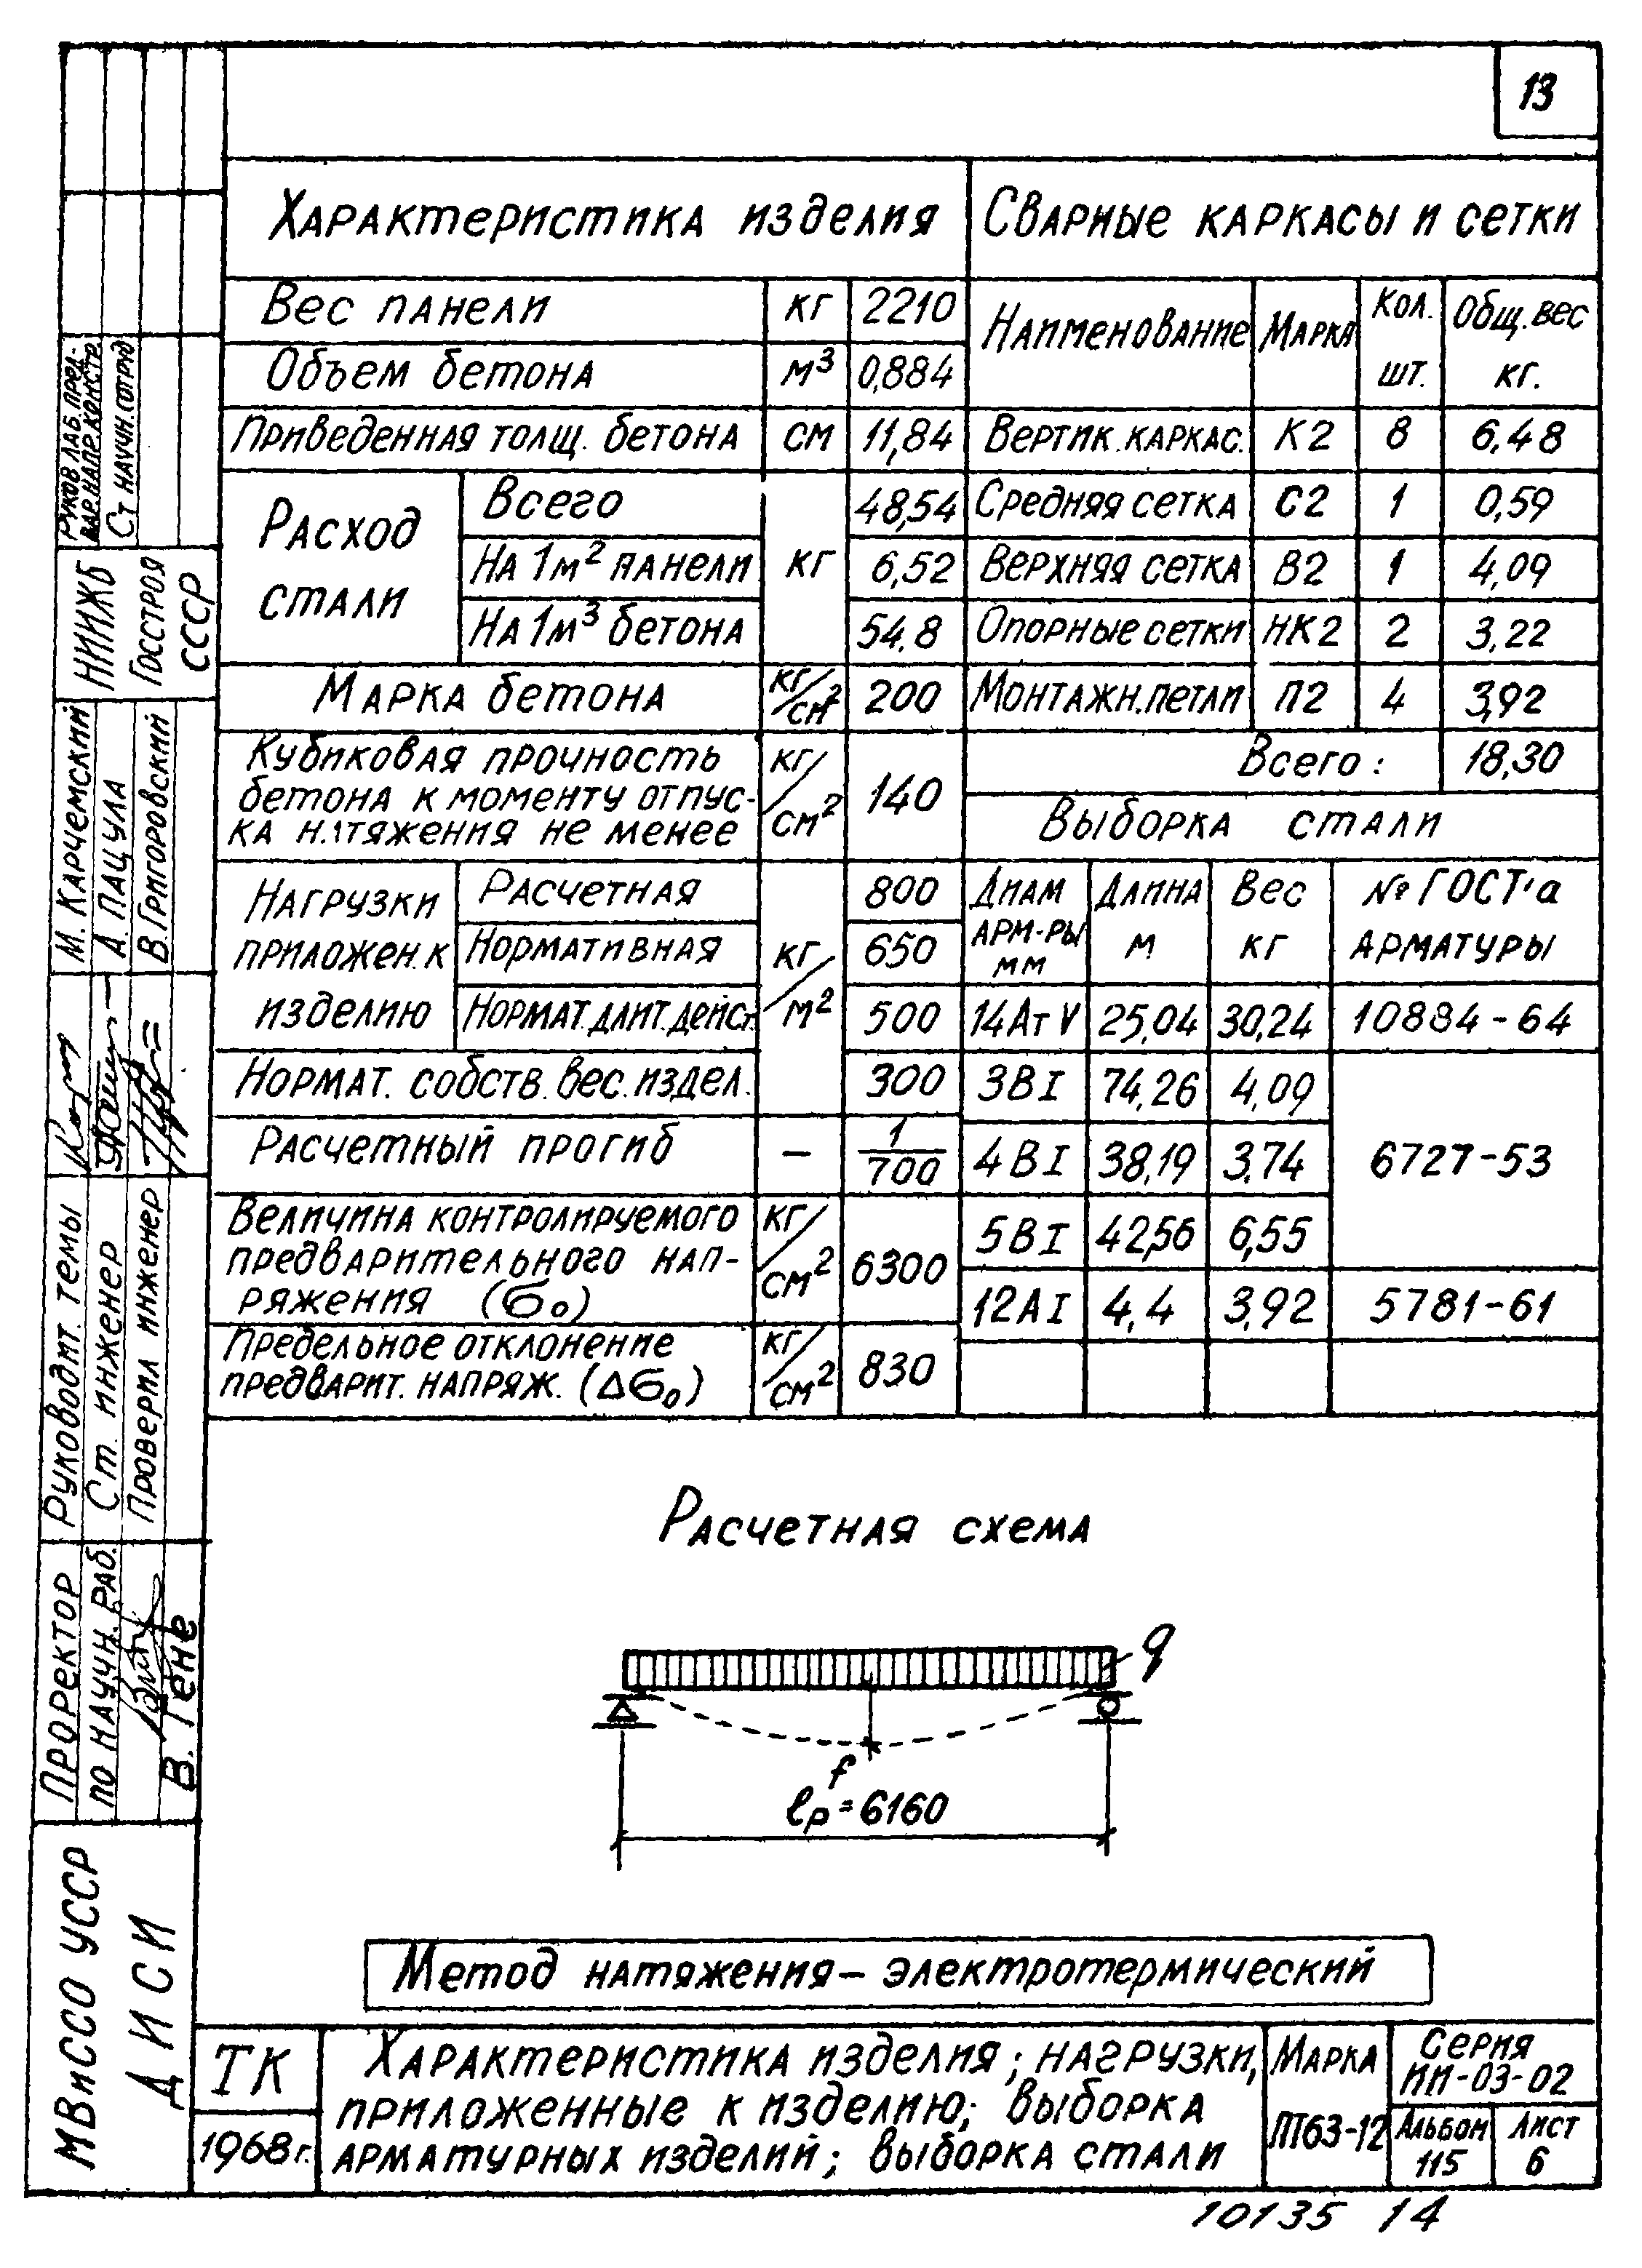 13
Характеристика изделия
Сварные каркасы и сетки
Вес панели кг 2210
Объем бетона м³ 0,884
Приведенная толщ. бетона см 11,84
Расход стали
кг
Всего 48,54
На 1м² панели 6,52
На 1м³ бетона 54,8
Марка бетона кг/см² 200
Кубиковая прочность
бетона к моменту отпус-
ка натяжения не менее
кг/см² 140
Нагрузки
приложен. к
изделию
кг/м²
Расчетная 800
Нормативная 650
Нормат. длит. дейст. 500
Нормат. собств. вес. издел. 300
Расчетный прогиб – 1/700
Величина контролируемого
предварительного нап-
ряжения (σ₀)
кг/см² 6300
Предельное отклонение
предварит. напряж. (Δσ₀)
кг/см² 830
Наименование Марка Кол. шт. Общ. вес кг.
Вертик. каркас. К2 8 6,48
Средняя сетка С2 1 0,59
Верхняя сетка В2 1 4,09
Опорные сетки НК2 2 3,22
Монтажн. петли П2 4 3,92
Всего: 18,30
Выборка стали
Диам арм-ры мм Длина м Вес кг № ГОСТ'а арматуры
14Ат V 25,04 30,24 10884-64
3В I 74,26 4,09
4В I 38,19 3,74 6727-53
5В I 42,56 6,55
12А I 4,4 3,92 5781-61
Расчетная схема
q
f
ℓр=6160
Метод натяжения – электротермический
ТК
1968г.
Характеристика изделия; нагрузки,
приложенные к изделию; выборка
арматурных изделий; выборка стали
Марка
ПТ63-12
Серия
ИИ-03-02
Альбом
115
Лист
6
10135 14
Руков. лаб. пред-
вар. напр. констр.
Ст научн. сотруд
НИИЖБ
Госстроя
СССР
М. Карчемский
А. Пацула
В. Григоровский
Руководит. темы
Ст. инженер
Проверил инженер
Проректор
по научн. раб.
В. Гене
МВиССО УССР
ДИСИ